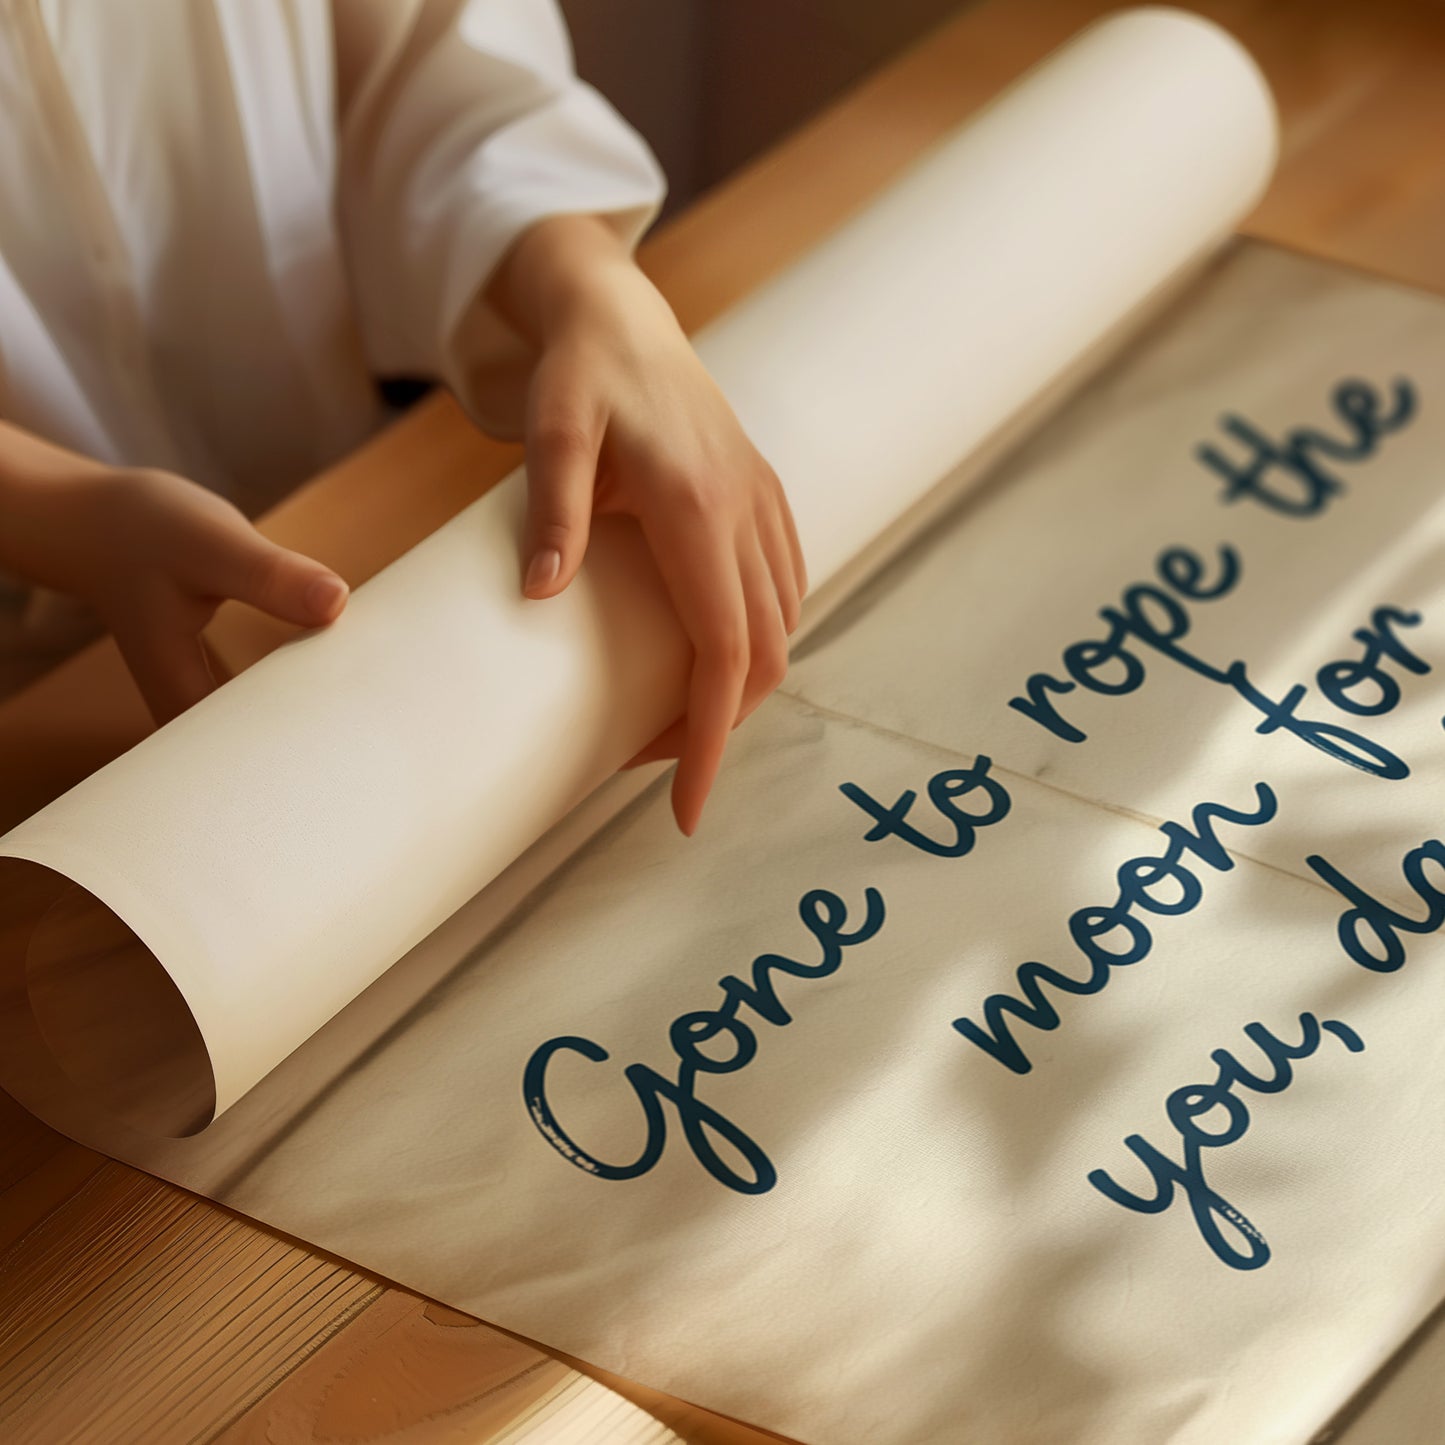 Gone to rope the
moon for
you,